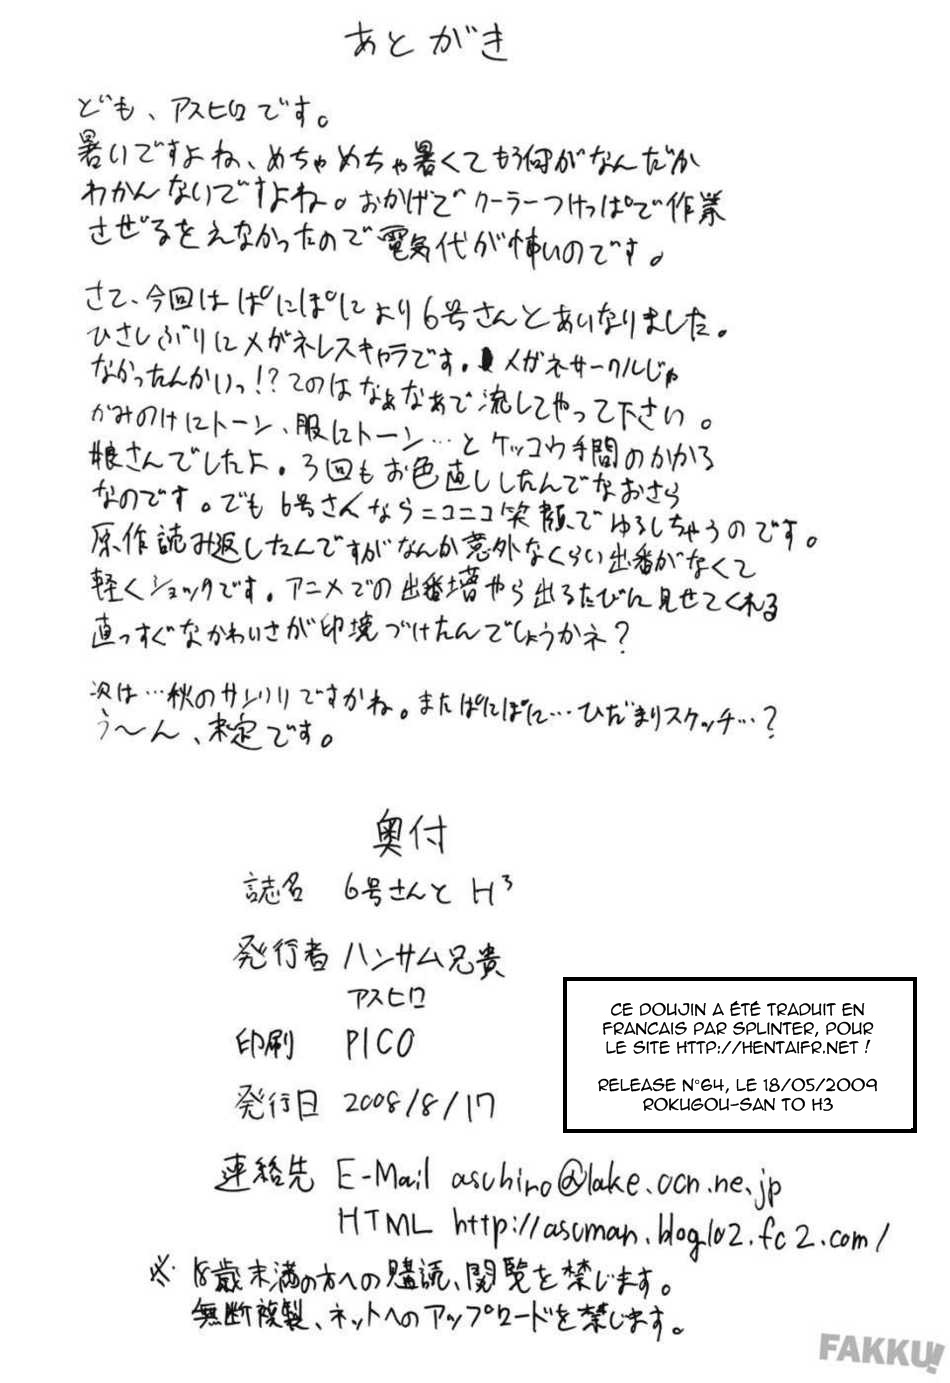 あとがき
ども、アスヒロです。
暑いですよね、めちゃめちゃ暑くてもう何がなんだか
わかんないですよね。おかげでクーラーつけっぱで作業
させざるをえなかったので電気代が怖いのです。
さて、今回はぱにぽにより6号さんとあいなりました。
ひさしぶりにメガネレスキャラです。メガネサークルじゃ
なかったんかいっ!?てのはなぁなぁで流してやって下さい。
かみのけにトーン、服にトーン…とケッコウ手間のかかる
娘さんでしたよ。3回もお色直ししたんでなおさら
なのです。でも6号さんならニコニコ笑顔でゆるしちゃうのです。
原作読み返したんですがなんか意外なくらい出番がなくて
軽くショックです。アニメでの出番増やら出るたびに見せてくれる
直っすぐなかわいさが印境づけたんでしょうかネ?
次は…秋のサンクリですかね。またぱにぽに…ひだまりスケッチ…?
う〜ん、未定です。
奥付
誌名 6号さんと H³
発行者 ハンサム兄貴
アスヒロ
印刷 PICO
発行日 2008/8/17
連絡先 E-Mail aschiro@lake.ocn.ne.jp
HTML http://ascman.blog102.fc2.com/
※ 18歳未満の方への購読、閲覧を禁じます。
無断複製、ネットへのアップロードを禁じます。
CE DOUJIN A ÉTÉ TRADUIT EN
FRANCAIS PAR SPLINTER, POUR
LE SITE HTTP://HENTAIFR.NET !
RELEASE N°64, LE 18/05/2009
ROKUGOU-SAN TO H3
FAKKU!